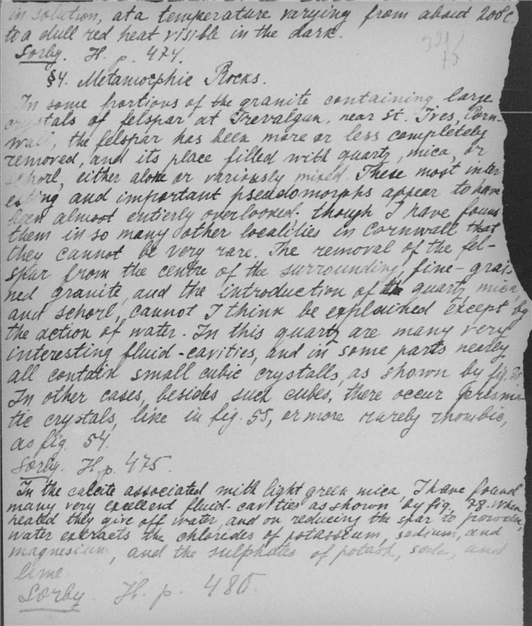 in solution, at a temperature varying from about 200°C
to a dull red heat visible in the dark.
Sorby. H. p. 474.
§4. Metamorphic Rocks.
In some portions of the granite containing large
crystals of felspar at Trevalgan, near St. Ives, Corn-
wall, the felspar has been more or less completely
removed, and its place filled with quartz, mica, or
schorl, either alone or variously mixed. These most inter-
esting and important pseudomorphs appear to have
been almost entirly overlooked. though I have found
them in so many other localities in Cornwall that
they cannot be very rare. The removal of the fel-
spar from the centre of the surrounding, fine-grai-
ned granite, and the introduction of the quartz, mica
and schorl, cannot I think be explained except by
the action of water. In this quartz are many very
interesting fluid-cavities, and in some parts nearly
all contain small cubic crystalls, as shown by fig.
In other cases, besides such cubes, there occur prisma
tic crystals, like in fig. 55, or more rarely rhombic,
as fig. 54.
Sorby. H. p. 475.
In the calcite associated with light green mica, I have found
many very excellent fluid-cavities as shown by fig. 78. When
heated they give off water, and on reducing the spar to powder,
water extracts the chlorides of potassium, sodium, and
magnesium, and the sulphates of potash, soda, and
lime.
Sorby. H. p. 480.